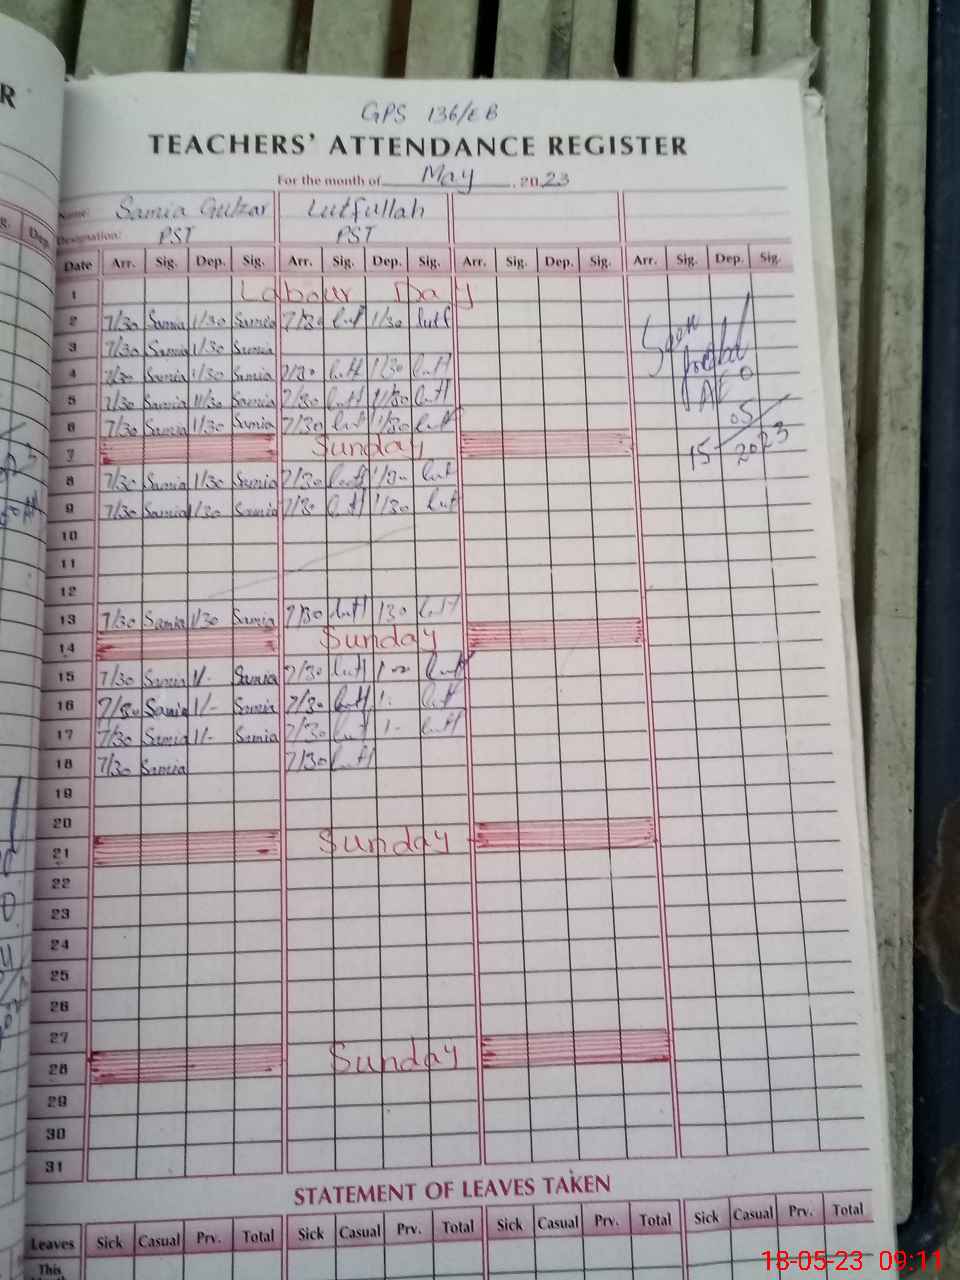 R
GPS 136/EB
TEACHERS' ATTENDANCE REGISTER
For the month of May, 2023
Name: Samia Gulzar Lutfullah
Designation: PST PST
Date Arr. Sig. Dep. Sig. Arr. Sig. Dep. Sig. Arr. Sig. Dep. Sig. Arr. Sig. Dep. Sig.
1 Labour Day
2 7/30 Samia 1/30 Samia 7/30 lutf 1/30 lutf
3 7/30 Samia 1/30 Samia
4 7/30 Samia 1/30 Samia 7/30 lutf 1/30 lutf
5 7/30 Samia 1/30 Samia 7/30 lutf 1/30 lutf
6 7/30 Samia 1/30 Samia 7/30 lutf 1/30 lutf
7 Sunday
8 7/30 Samia 1/30 Samia 7/30 lutf 1/30 lutf
9 7/30 Samia 1/30 Samia 7/30 lutf 1/30 lutf
10
11
12
13 7/30 Samia 1/30 Samia 7/30 lutf 130 lutf
14 Sunday
15 7/30 Samia 1/- Samia 7/30 lutf lutf
16 7/30 Samia 1/- Samia 7/30 lutf lutf
17 7/30 Samia 1/- Samia 7/30 lutf 1- lutf
18 7/30 Samia 7/30 lutf
19
20
21 Sunday
22
23
24
25
26
27
28 Sunday
29
30
31
Seen
AEO
15/05/2023
STATEMENT OF LEAVES TAKEN
Leaves Sick Casual Prv. Total Sick Casual Prv. Total Sick Casual Prv. Total Sick Casual Prv. Total
This
18-05-23 09:11